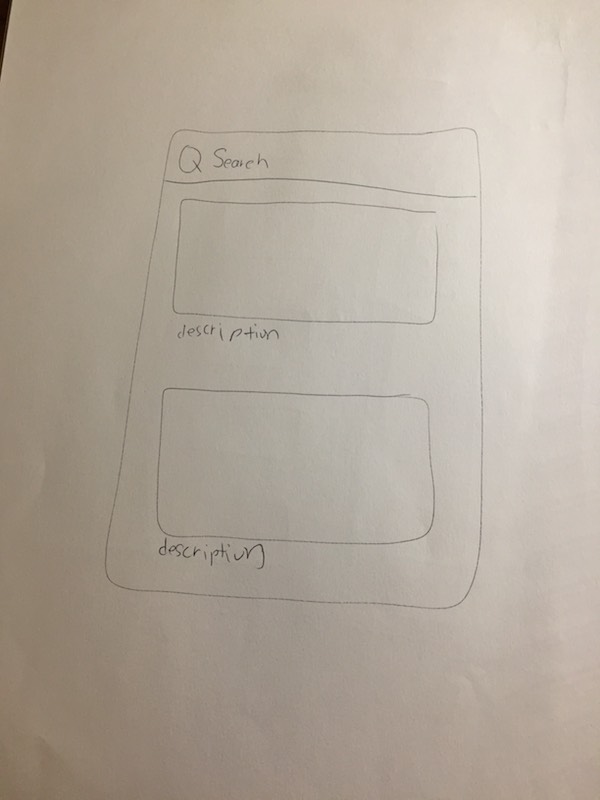 Q Search
description
description